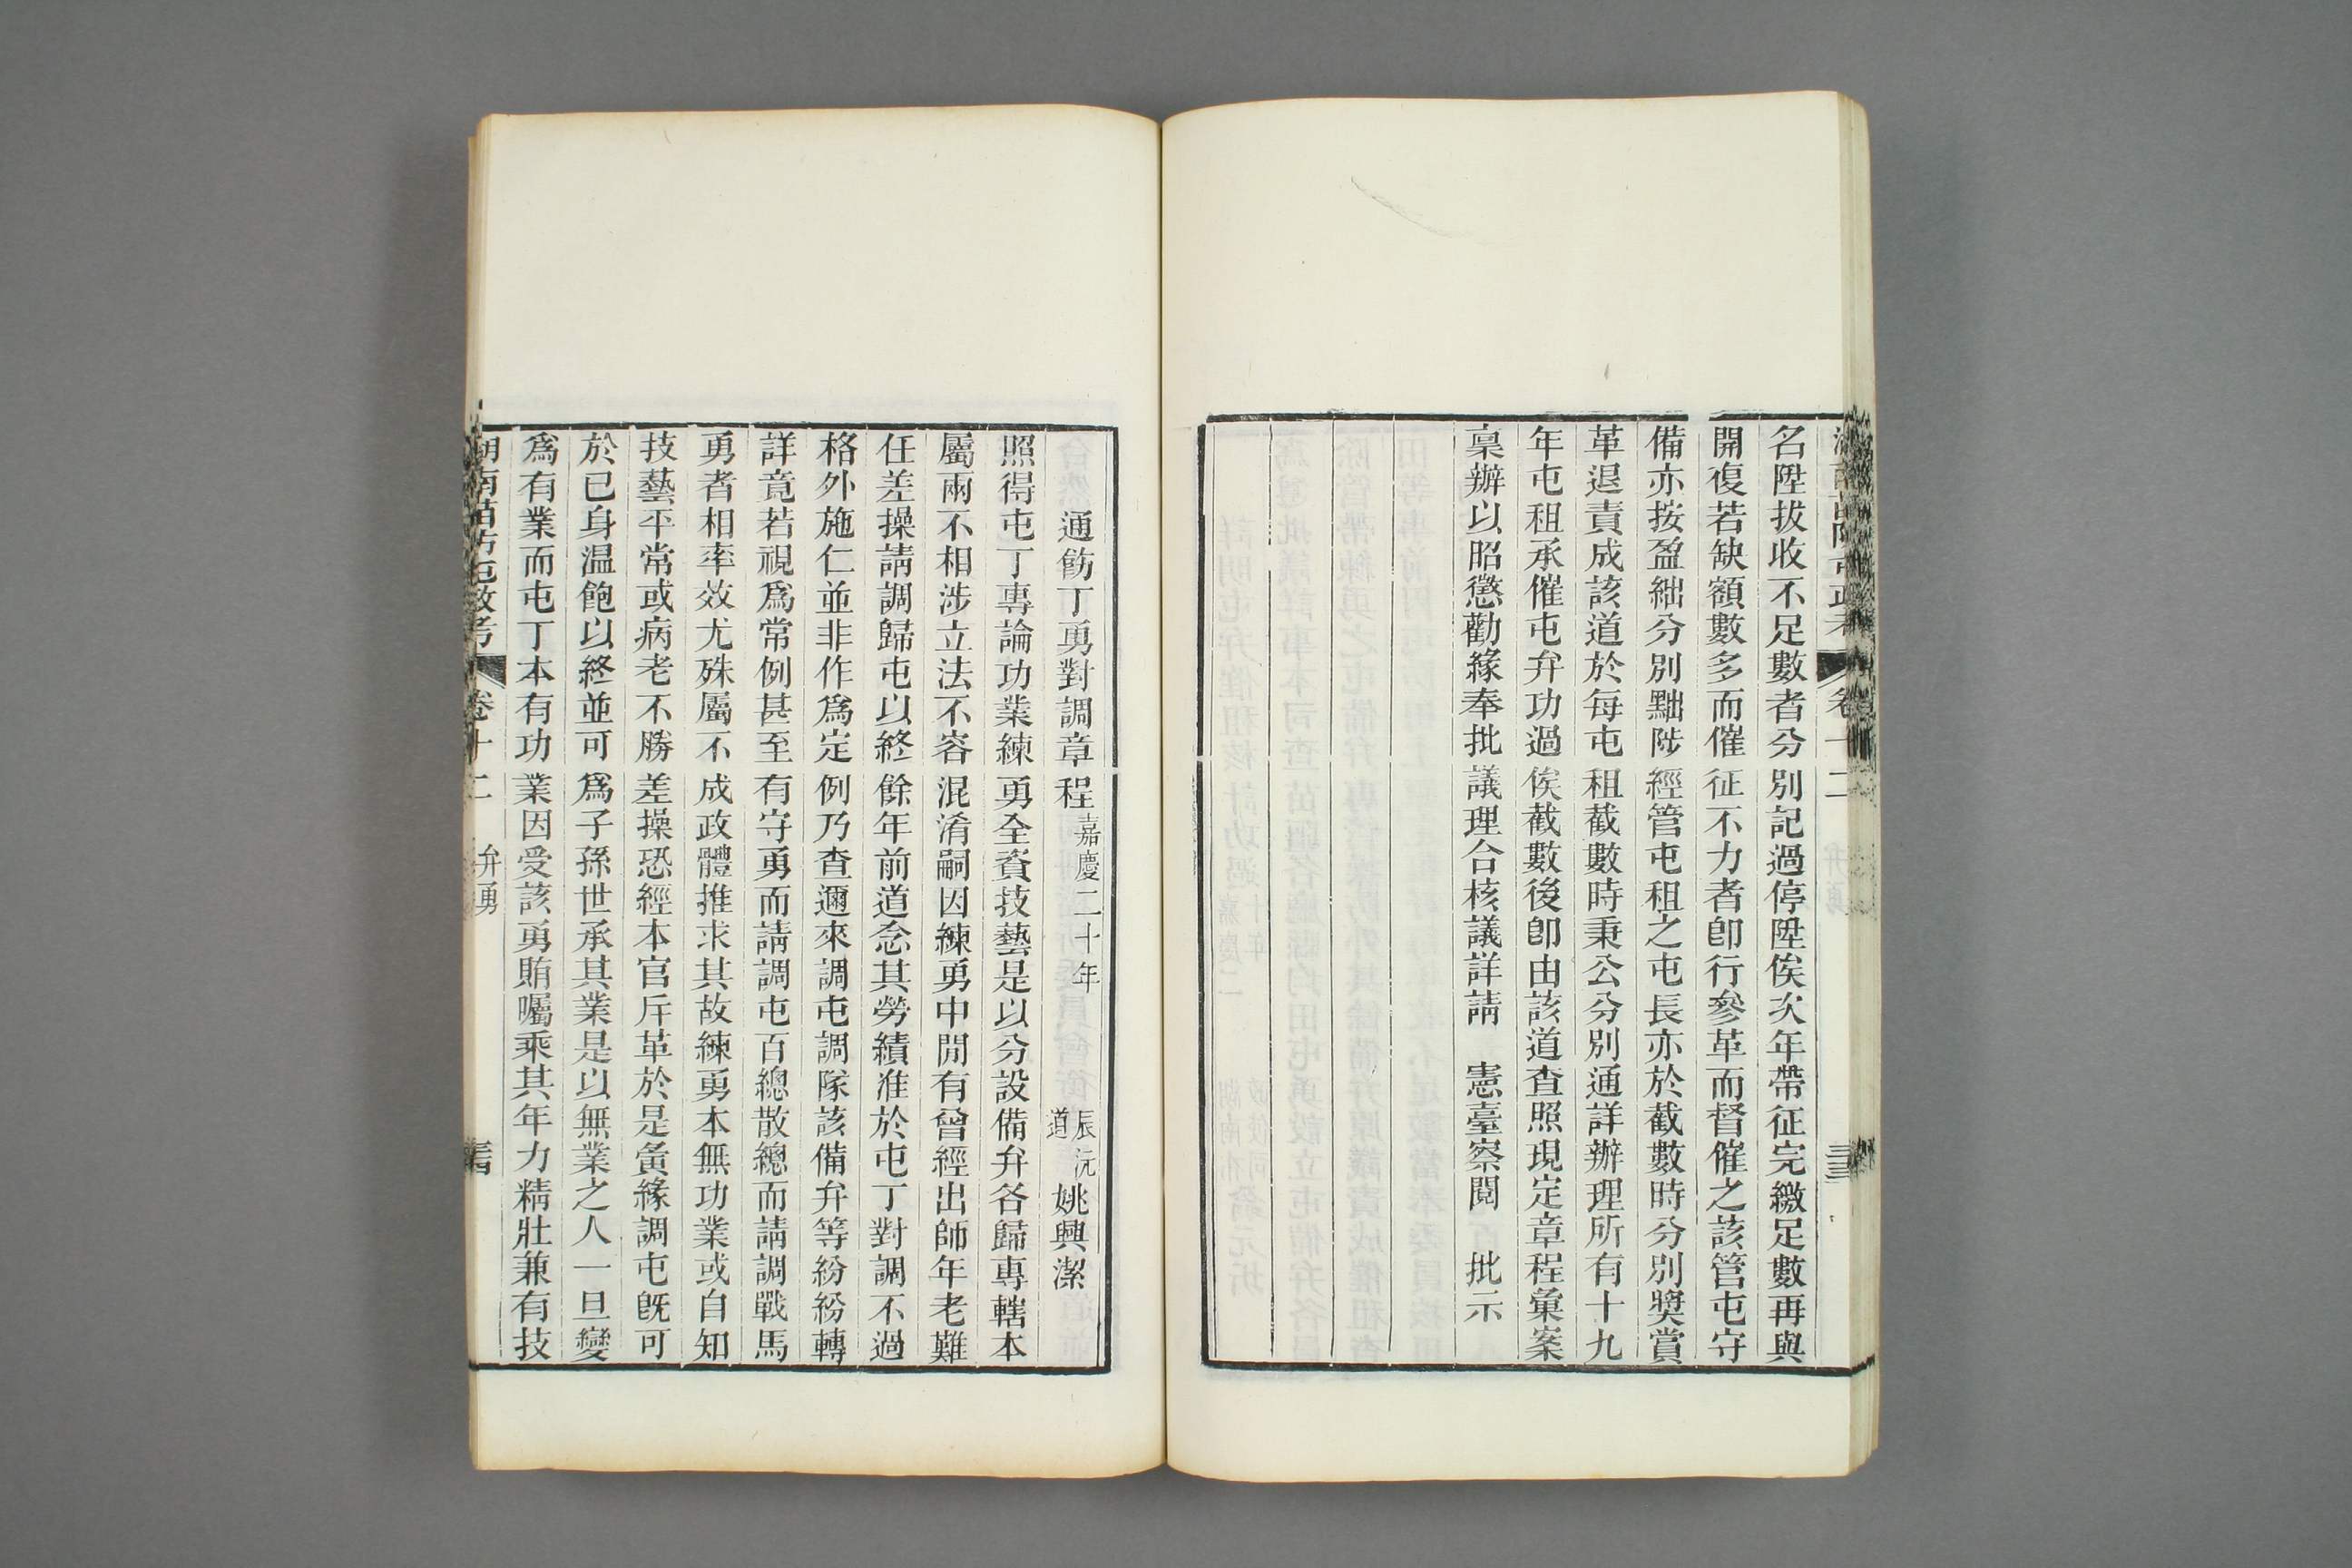 名陞拔收不足數者分別記過停陞俟次年帶征完繳足數再與
開復若缺額數多而催征不力者卽行參革而督催之該管屯守
備亦按盈絀分別黜陟經管屯租之屯長亦於截數時分別獎賞
革退責成該道於每屯租截數時秉公分別通詳辦理所有十九
年屯租承催屯弁功過俟截數後卽由該道查照現定章程彙案
稟辦以昭懲勸緣奉批議理合核議詳請 憲臺察閱 批示
通飭丁勇對調章程嘉慶二十年 辰沅道姚興潔
照得屯丁專論功業練勇全資技藝是以分設備弁各歸專轄本
屬兩不相涉立法不容混淆嗣因練勇中閒有曾經出師年老難
任差操請調歸屯以終餘年前道念其勞績准於屯丁對調不過
格外施仁並非作爲定例乃查邇來調屯調隊該備弁等紛紛轉
詳竟若視爲常例甚至有守勇而請調屯百總散總而請調戰馬
勇者相率效尤殊屬不成政體推求其故練勇本無功業或自知
技藝平常或病老不勝差操恐經本官斥革於是夤緣調屯旣可
於已身溫飽以終並可爲子孫世承其業是以無業之人一旦變
爲有業而屯丁本有功業因受該勇賄囑乘其年力精壯兼有技
湖南苗防屯政考 卷十二 弁勇